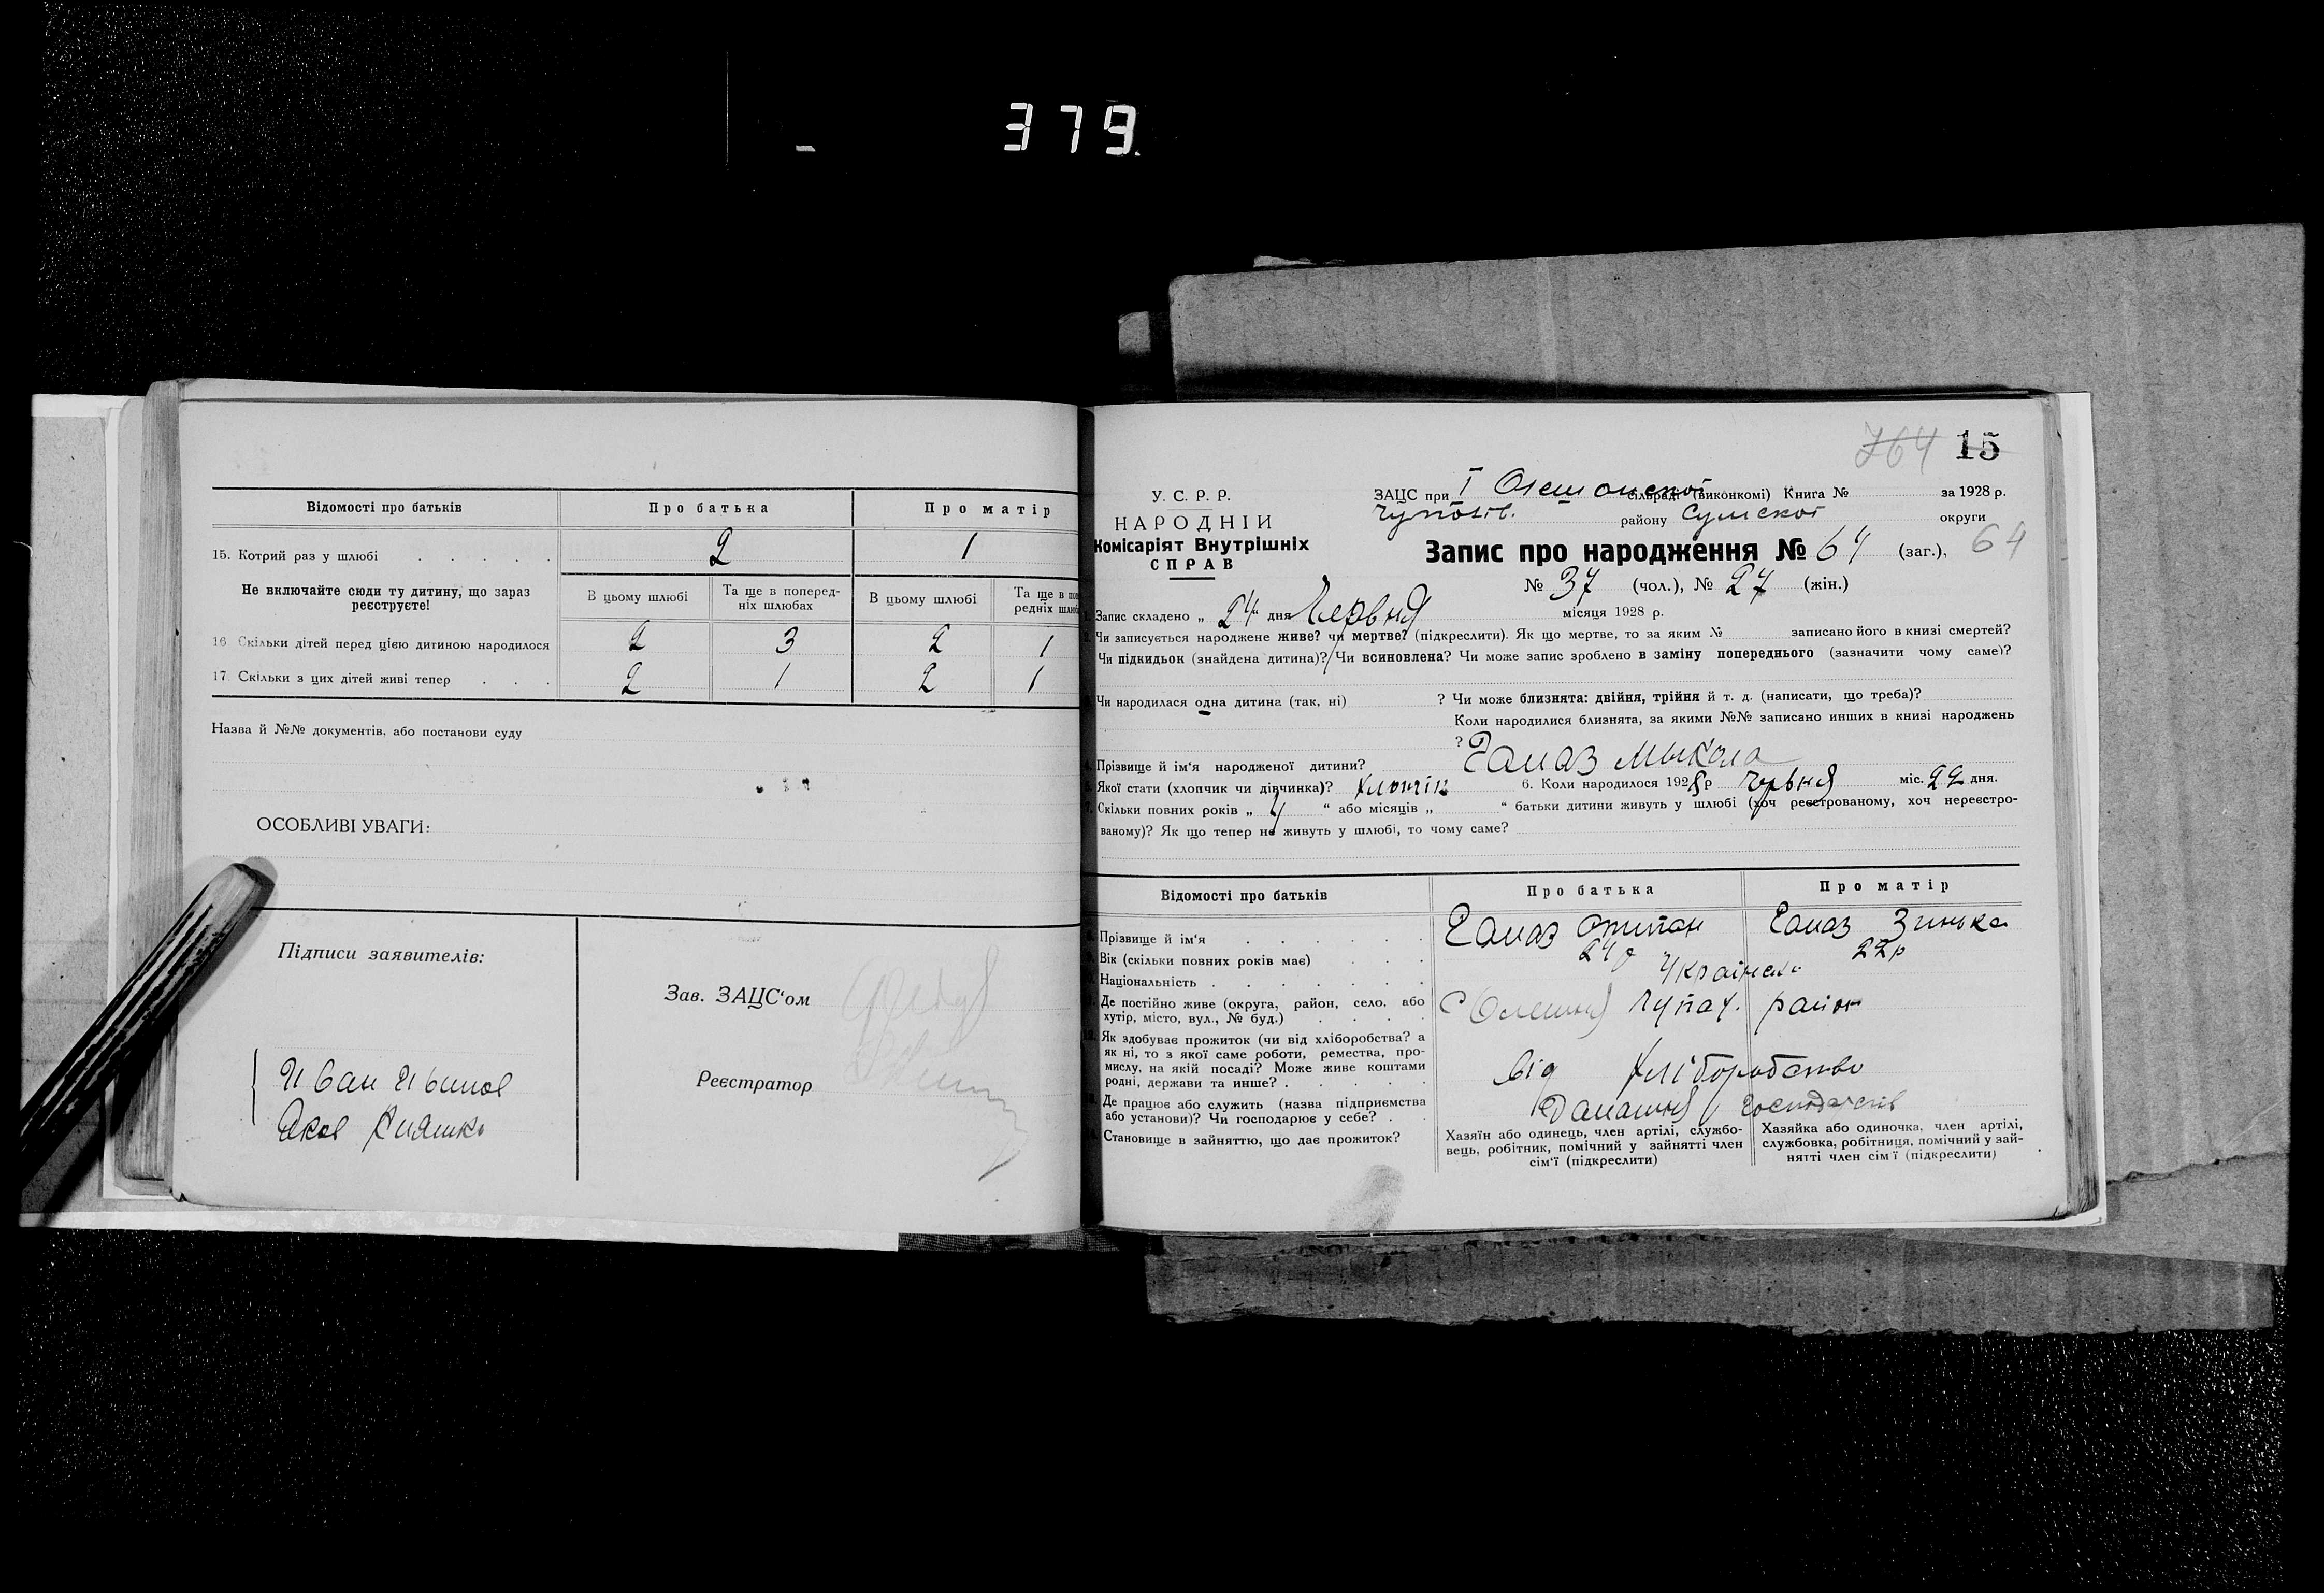 379.
Відомості про батьків Про батька Про матір
15. Котрий раз у шлюбі 2 1
Не включайте сюди ту дитину, що зараз реєструєте!
В цьому шлюбі Та ще в попередніх шлюбах В цьому шлюбі Та ще в по
редніх шлюб
16. Скільки дітей перед цією дитиною народилося 2 3 2 1
17. Скільки з цих дітей живі тепер 2 1 2 1
Назва й №№ документів, або постанови суду
ОСОБЛИВІ УВАГИ:
Підписи заявителів:
Зав. ЗАЦС‘ом
Реєстратор
Иван
Яков
764 15
У. С. Р. Р.
НАРОДНІЙ
Комісаріят Внутрішніх
СПРАВ
ЗАЦС при І сільраді (виконкомі) Книга № за 1928 р.
району Сумскої округи
Запис про народження № 64 (заг.), 64
№ 37 (чол.), № 27 (жін.)
Запис складено „ 24 “ дня Червня місяця 1928 р.
Чи записується народжене живе? чи мертве? (підкреслити). Як що мертве, то за яким № записано його в книзі смертей?
Чи підкидьок (знайдена дитина)? Чи всиновлена? Чи може запис зроблено в заміну попереднього (зазначити чому саме)?
Чи народилася одна дитина (так, ні) ? Чи може близнята: двійня, трійня й т. д. (написати, що треба)?
Коли народилися близнята, за якими №№ записано инших в книзі народжень
?
Прізвище й ім‘я народженої дитини? Гамаз Микола
Якої стати (хлопчик чи дівчинка)? хлопчік 6. Коли народилося 1928 р червня міс. 22 дня.
Скільки повних років „ 4 “ або місяців „ “ батьки дитини живуть у шлюбі (хоч реєстрованому, хоч нереєстро-
ваному)? Як що тепер не живуть у шлюбі, то чому саме?
Відомості про батьків Про батька Про матір
Прізвище й ім‘я Гамаз Гамаз Зинька
Вік (скільки повних років має) 24 р 22 р
Національність Українська
Де постійно живе (округа, район, село, або
хутір, місто, вул., № буд.) район
Як здобуває прожиток (чи від хліборобства? а
як ні, то з якої саме роботи, ремества, про-
мислу, на якій посаді? Може живе коштами
родні, держави та инше? від хліборобства
Де працює або служить (назва підприємства
або установи)? Чи господарює у себе?
Становище в зайняттю, що дає прожиток?
Хазяїн або одинець, член артілі, службо-
вець, робітник, помічний у зайнятті член
сім‘ї (підкреслити)
Хазяйка або одиночка, член артілі,
службовка, робітниця, помічний у зай-
нятті член сім‘ї (підкреслити)